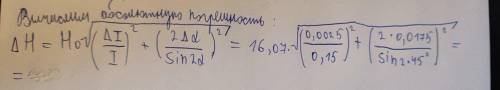 Вычислим абсолютную погрешность:
ΔH = H₀√((ΔI/I)² + (2Δα/Sin2α)²) = 16,07·√((0,0025/0,15)² + (2·0,0175/Sin2·45°)²) =
=